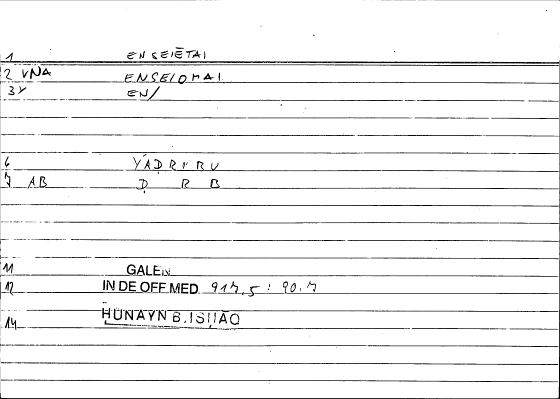 1 ENSEIETAI
2 VNA ENSEIOMAI
3 Y EN/
6 YADRIBU
7 AB Ḍ R B
11 GALEN
12 IN DE OFF MED 917,5 : 90.7
14 HUNAYN B. ISḤAQ